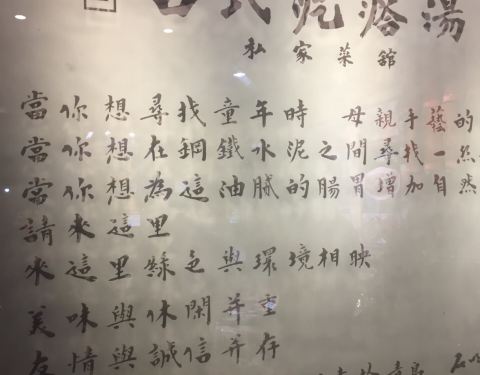 氏疙瘩湯
私家菜館
當你想尋找童年時 母親手藝的
當你想在鋼鐵水泥之間尋找一
當你想為這油膩的腸胃增加自然
請來這里
來這里綠色與環境相映
美味與休閑并重
友情與誠信并存